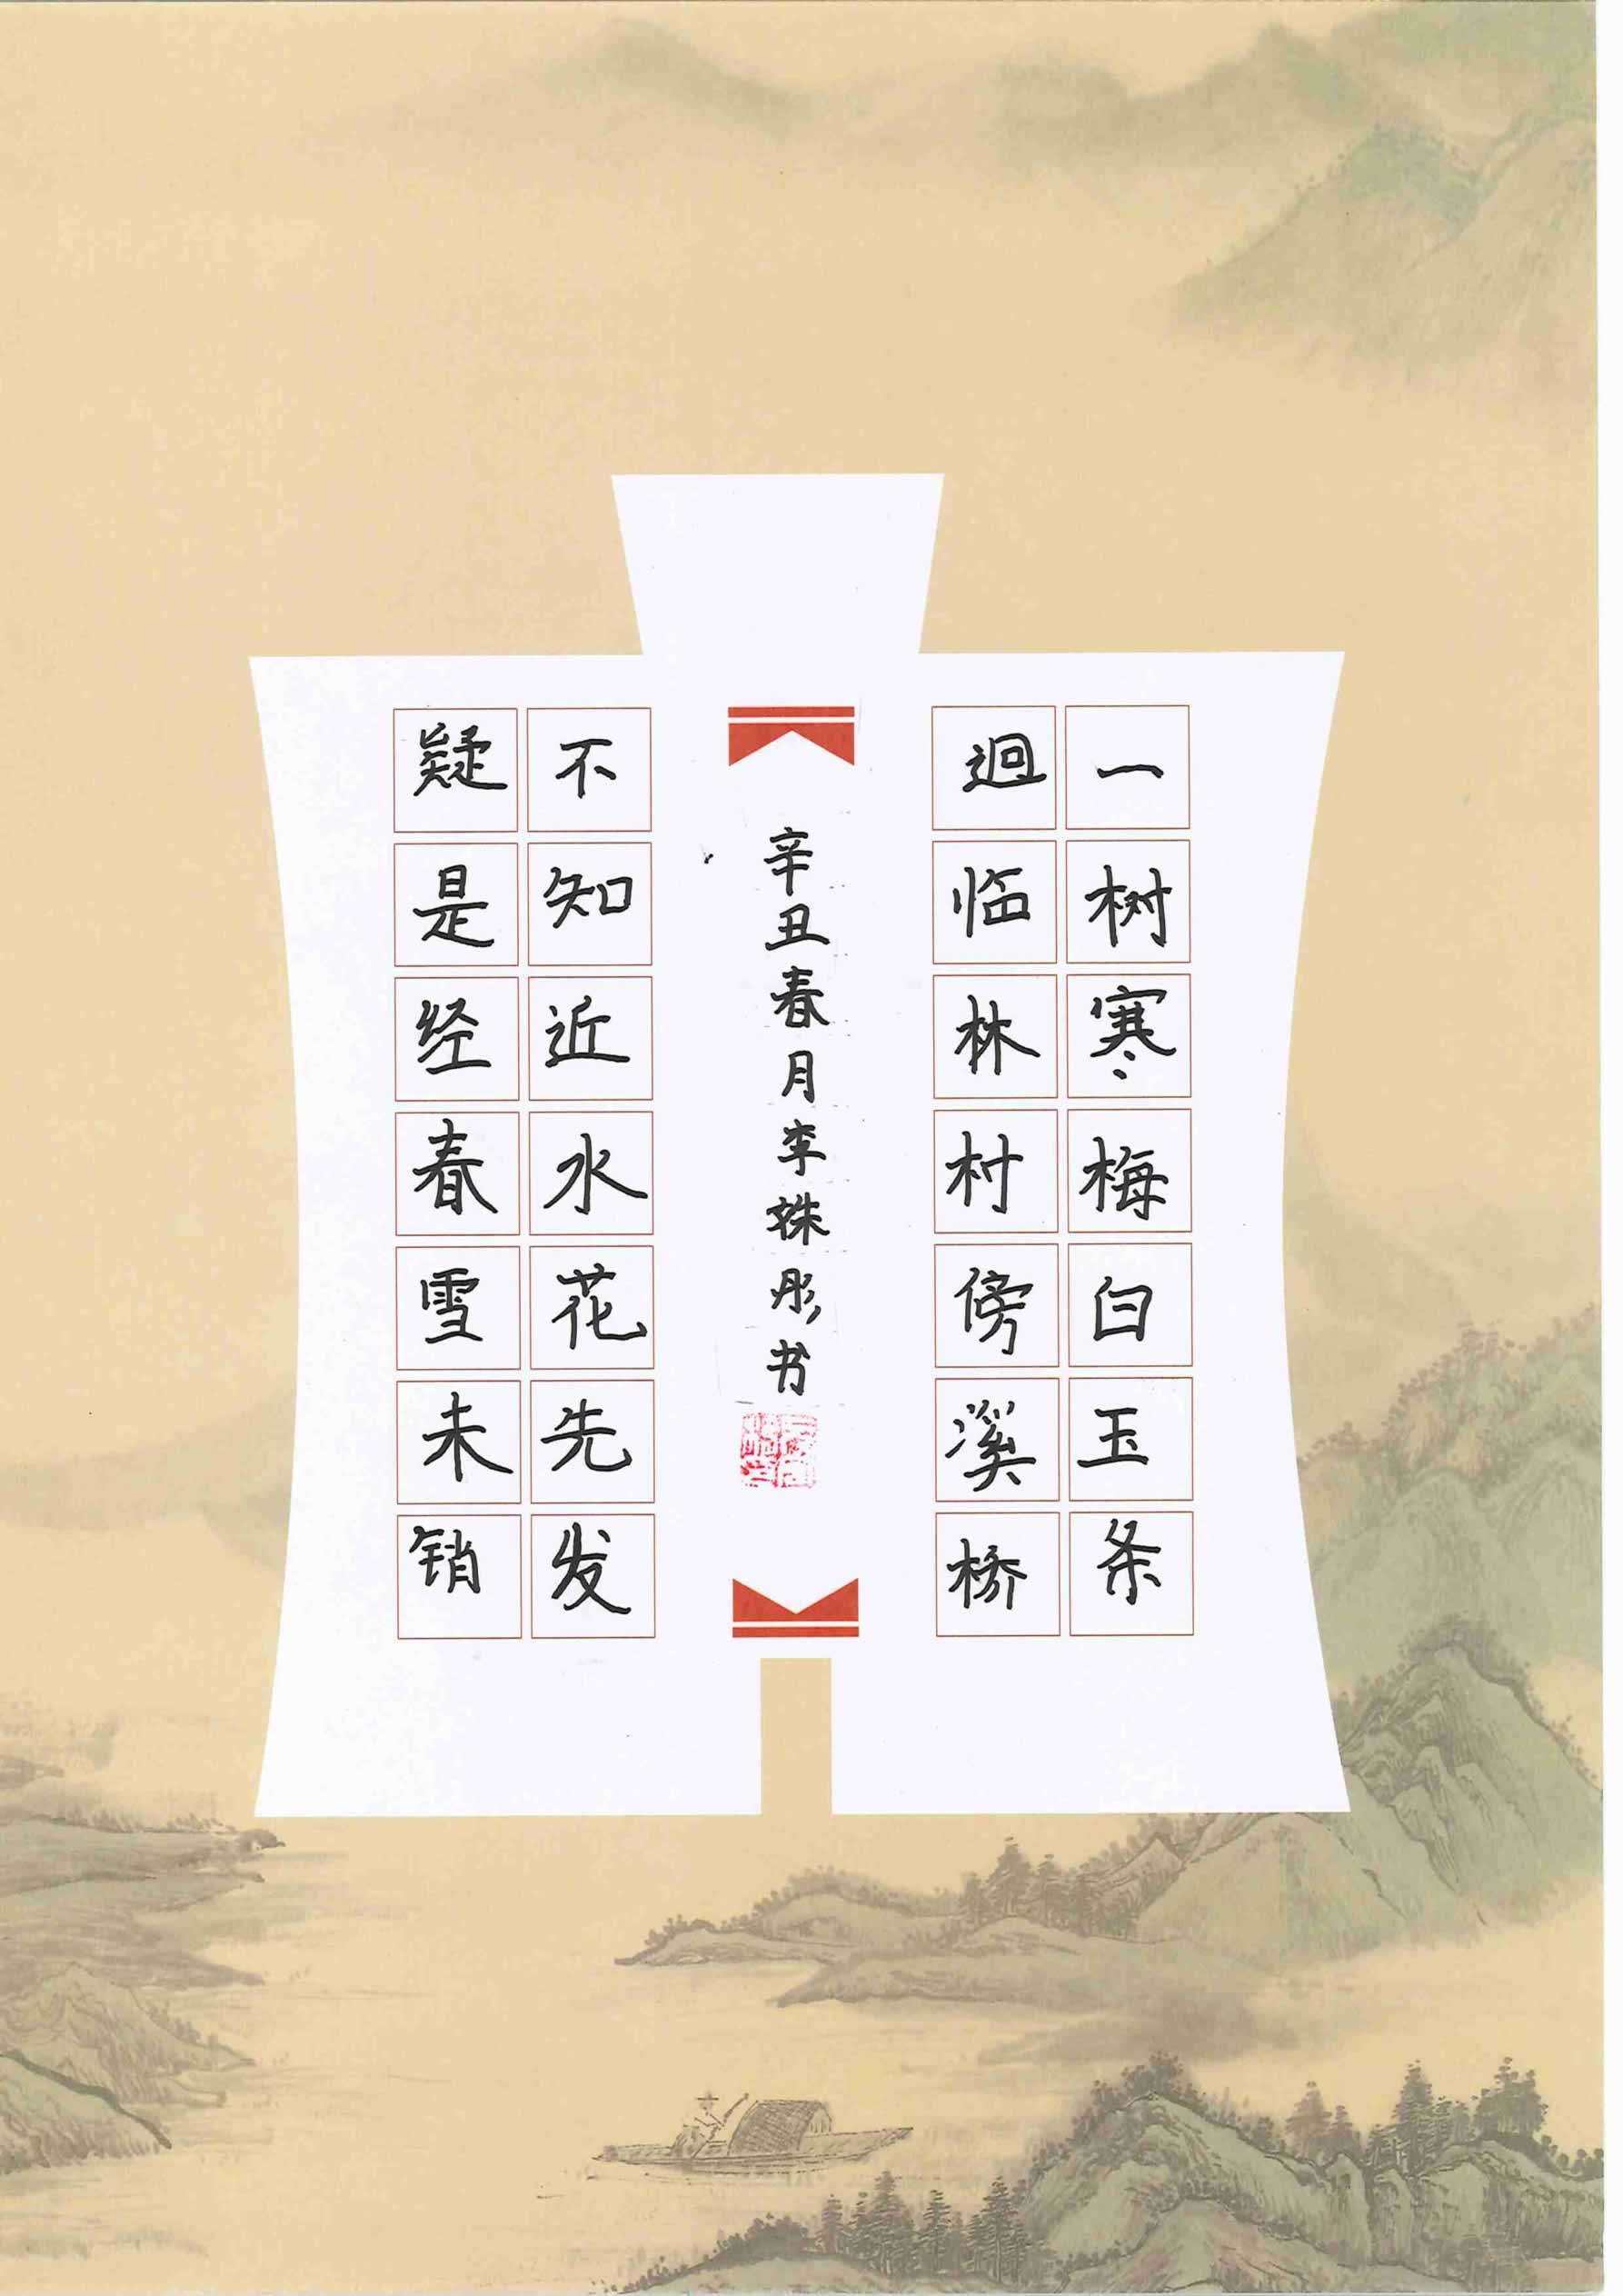 一树寒梅白玉条
迥临林村傍溪桥
辛丑春月李姝彤书
不知近水花先发
疑是经春雪未销